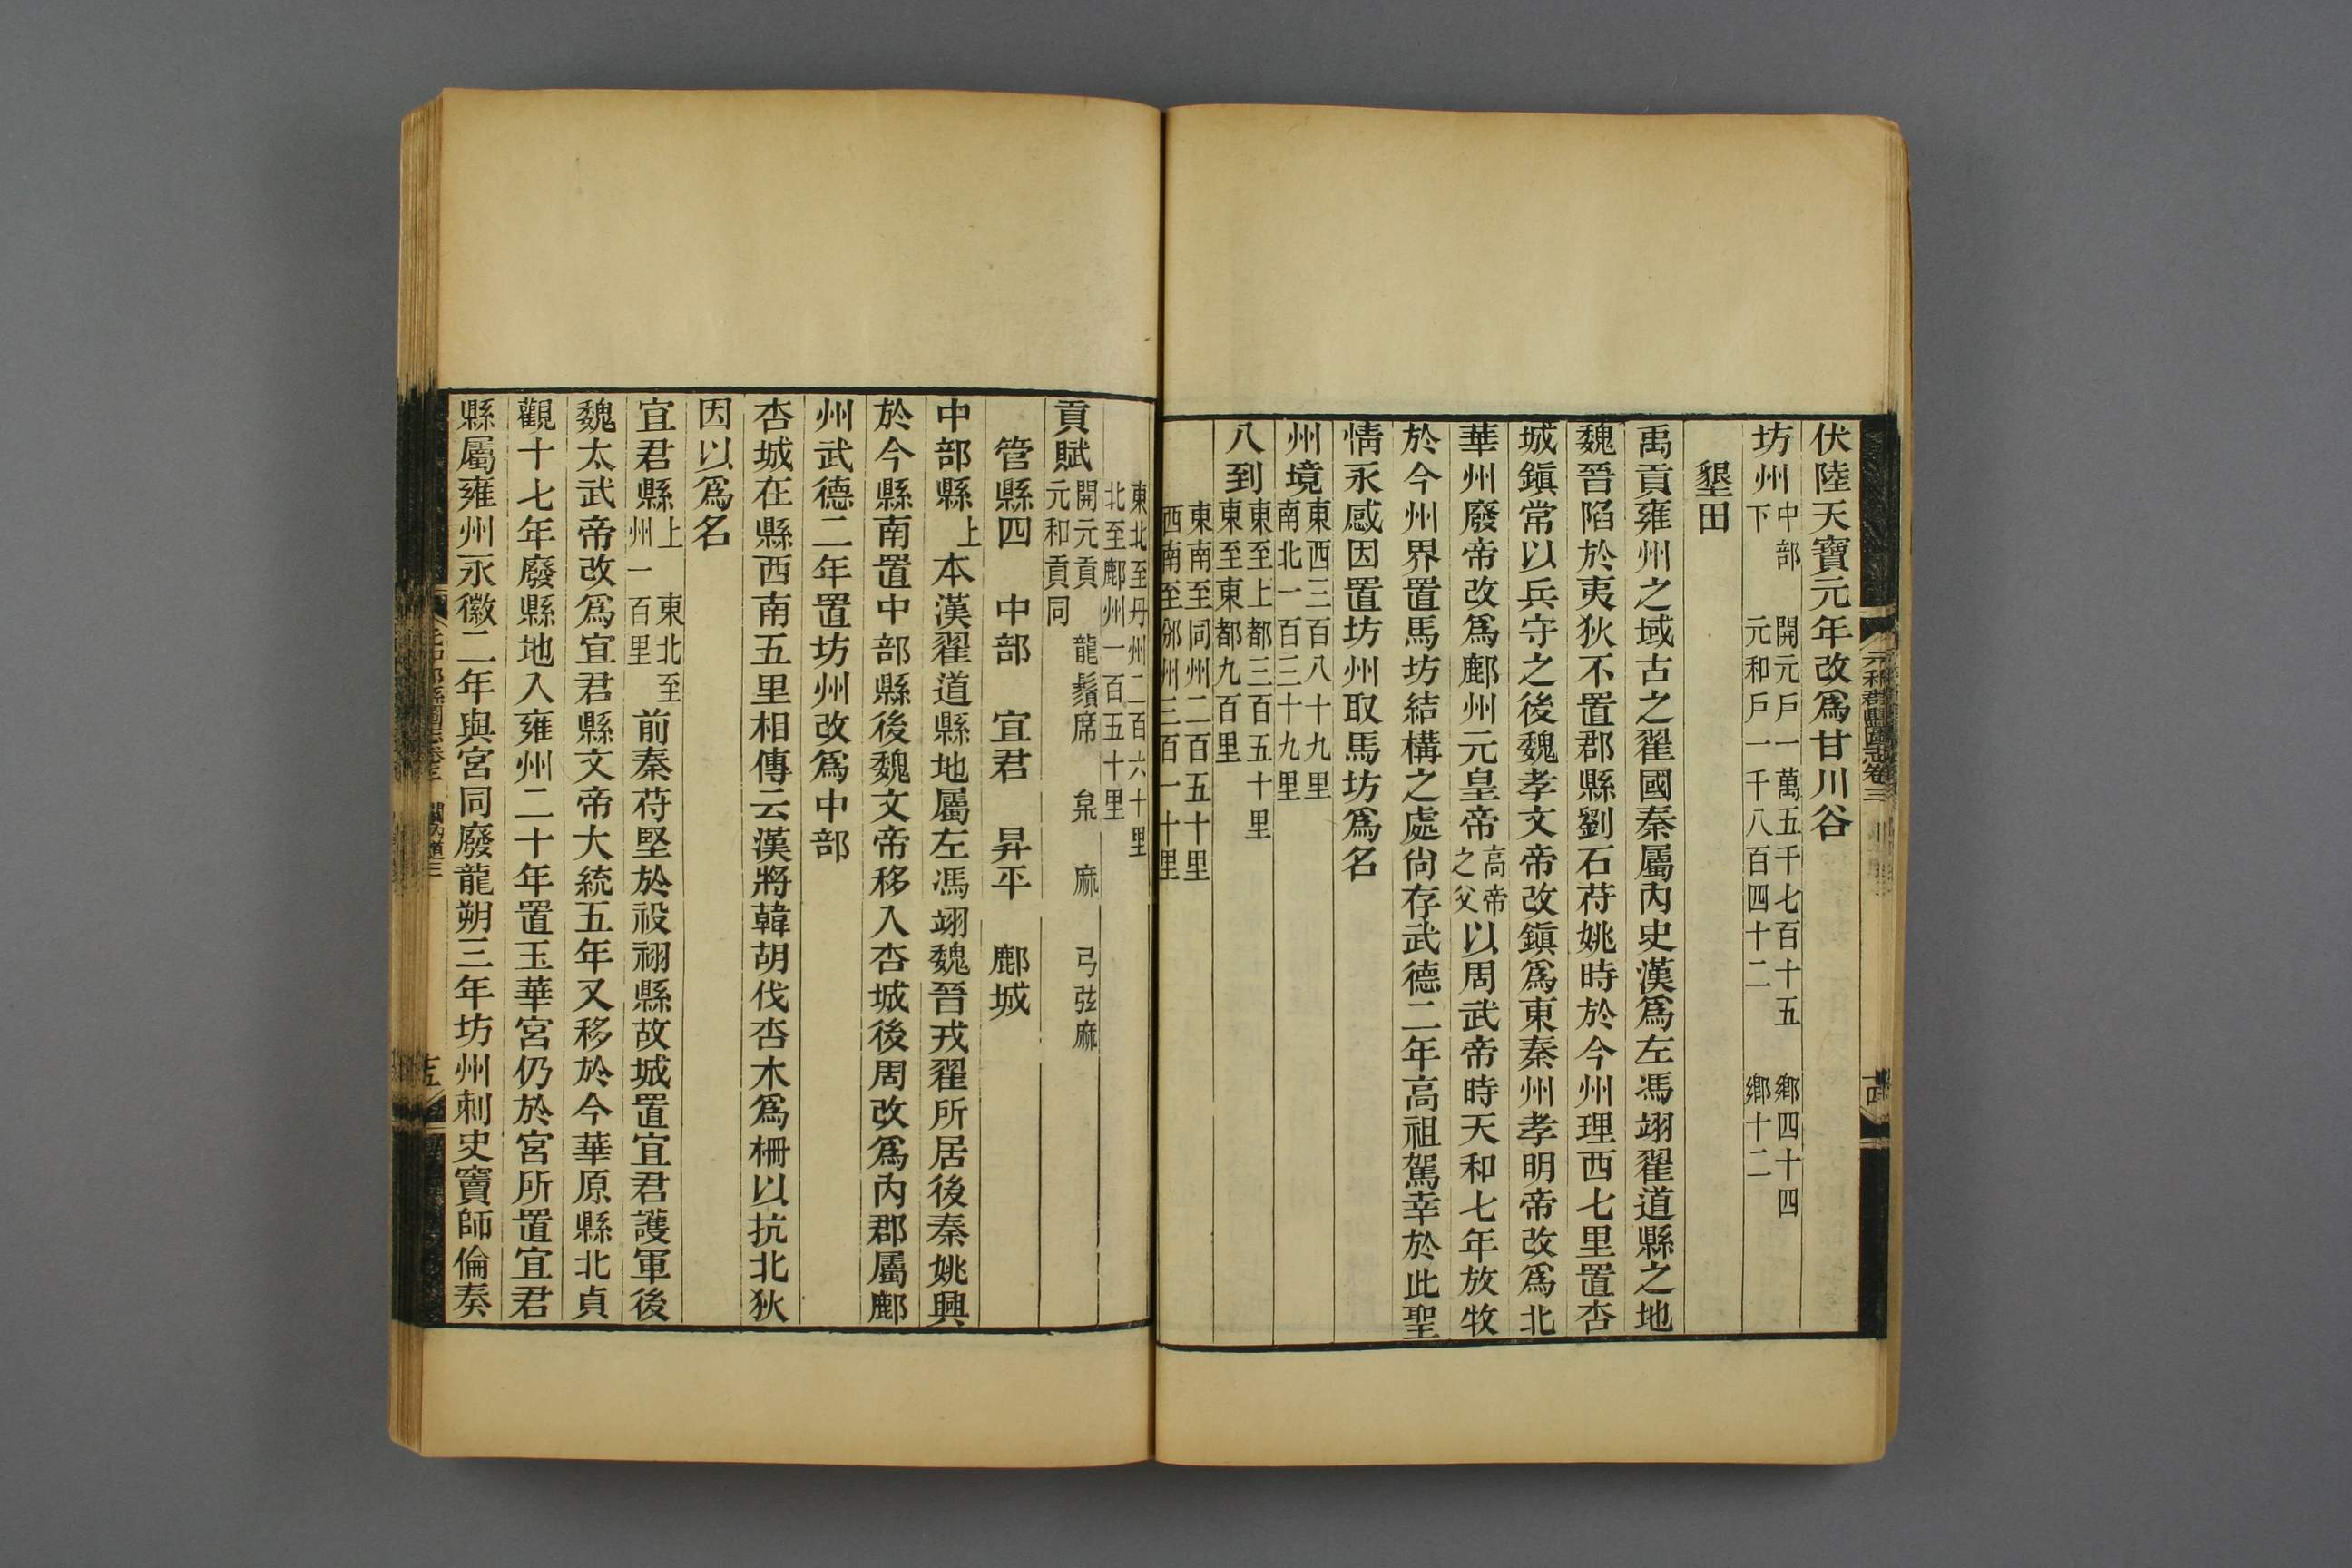 伏陸天寶元年改爲甘川谷
坊州中部下 開元戸一萬五千七百十五 鄉四十四
元和戸一千八百四十二 鄉十二
墾田
禹貢雍州之域古之翟國秦屬內史漢爲左馮翊翟道縣之地
魏晉陷於夷狄不置郡縣劉石苻姚時於今州理西七里置杏
城鎭常以兵守之後魏孝文帝改鎭爲東秦州孝明帝改爲北
華州廢帝改爲鄜州元皇帝高帝之父以周武帝時天和七年放牧
於今州界置馬坊結構之處尙存武德二年高祖駕幸於此聖
情永感因置坊州取馬坊爲名
州境東西三百八十九里
南北一百三十九里
八到東至上都三百五十里
東至東都九百里
東南至同州二百五十里
西南至邠州三百一十里
東北至丹州二百六十里
北至鄜州一百五十里
貢賦開元貢 龍鬚席 枲 麻 弓弦麻
元和貢同
管縣四 中部 宜君 昇平 鄜城
中部縣上 本漢翟道縣地屬左馮翊魏晉戎翟所居後秦姚興
於今縣南置中部縣後魏文帝移入杏城後周改爲內郡屬鄜
州武德二年置坊州改爲中部
杏城在縣西南五里相傳云漢將韓胡伐杏木爲柵以抗北狄
因以爲名
宜君縣上 東北至
州一百里 前秦苻堅於祋祤縣故城置宜君護軍後
魏太武帝改爲宜君縣文帝大統五年又移於今華原縣北貞
觀十七年廢縣地入雍州二十年置玉華宮仍於宮所置宜君
縣屬雍州永徽二年與宮同廢龍朔三年坊州刺史竇師倫奏
元和郡縣圖志卷三
十四